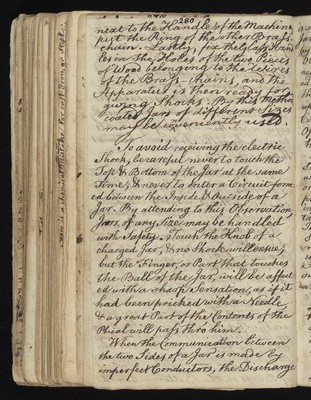 280
next to the Handle of the Machine
put the Ring of the other Brass
chain. Lastly, fix the glass Han
les in the Holes of the two Pieces
of Wood belonging to the Wires
of the Brass Chains, and the
Apparatus is then ready for
giving Shocks. By this Method
coated Jars of different Sizes
may be conveniently used.
To avoid receiving the electric
Shock, be careful never to touch the
Top & Bottom of the Jar at the same
Time, & never to enter a Circuit form
ed between the Inside & Outside of a
Jar. By attending to this Observation,
Jars, of any Size may be handled
with Safety. Touch the Knob of a
charged Jar, & no Shock will ensue;
but the Finger, or Part that touches
the Ball of the Jar, will be affect
ed with a sharp Sensation, as if it
had been pricked with a Needle,
& a great Part of the Contents of the
Phial will pass thro him.
When the Communication between
the two Sides of a Jar is made by
imperfect Conductors, the Discharge